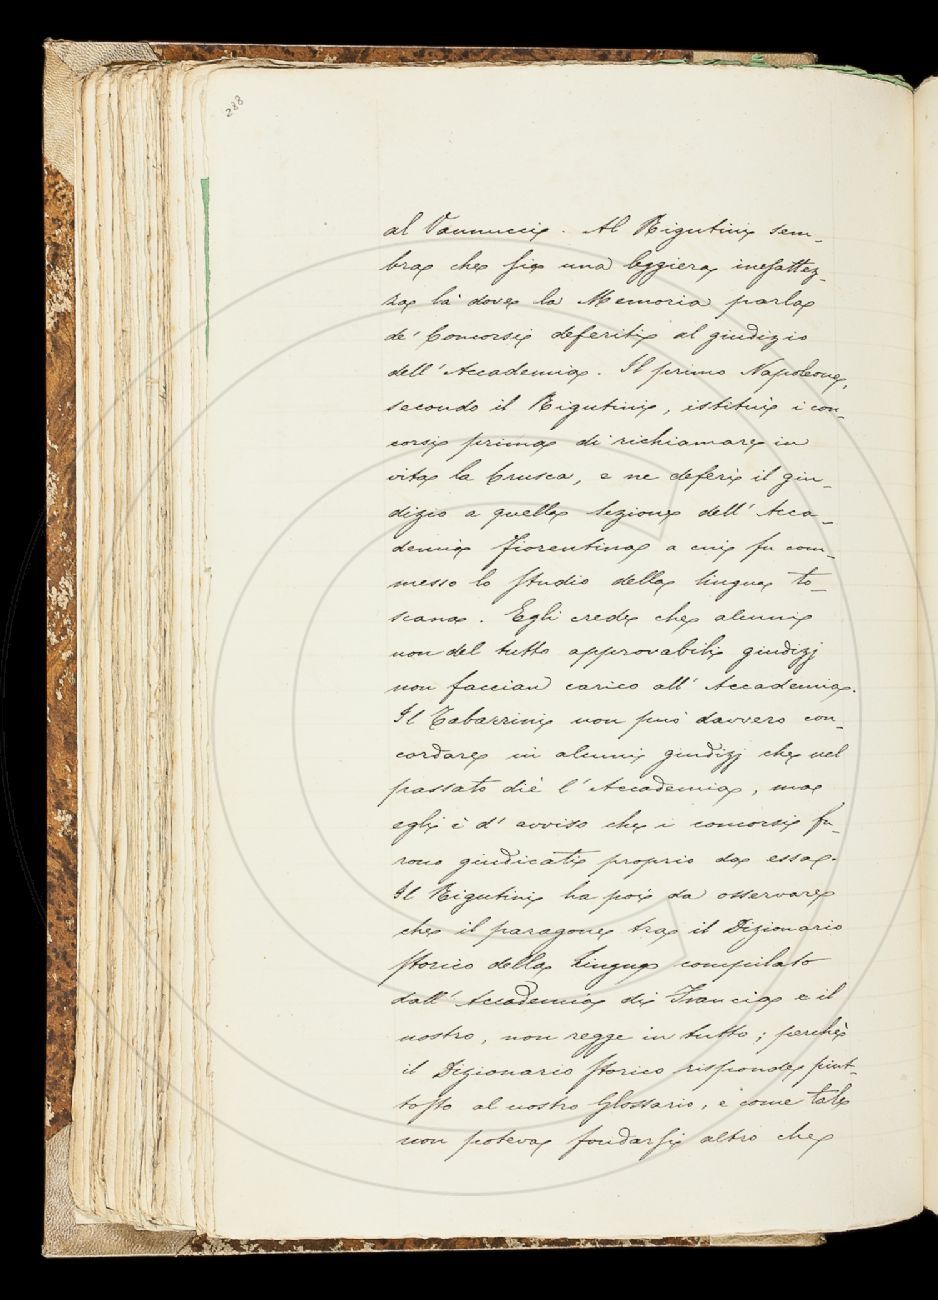 288
al Vannucci. Al Rigutini sem-
bra che sia una leggiera inesattez-
za là dove la Memoria parla
de' Concorsi deferiti al giudizio
dell'Accademia. Il primo Napoleone,
secondo il Rigutini, istituì i con-
corsi prima di richiamare in
vita la Crusca, e ne deferì il giu-
dizio a quella Sezione dell'Acca-
demia Fiorentina a cui fu com-
messo lo studio della lingua to-
scana. Egli crede che alcuni
non del tutto approvabili giudizj
non faccian carico all'Accademia.
Il Tabarrini non può davvero con-
cordare in alcuni giudizj che nel
passato diè l'Accademia, ma
egli è d'avviso che i concorsi fu-
rono giudicati proprio da essa.
Il Rigutini ha poi da osservare
che il paragone tra il Dizionario
storico della Lingua compilato
dall'Accademia di Francia e il
nostro, non regge in tutto; perchè
il Dizionario storico risponde piut-
tosto al nostro Glossario, e come tale
non poteva fondarsi altro che